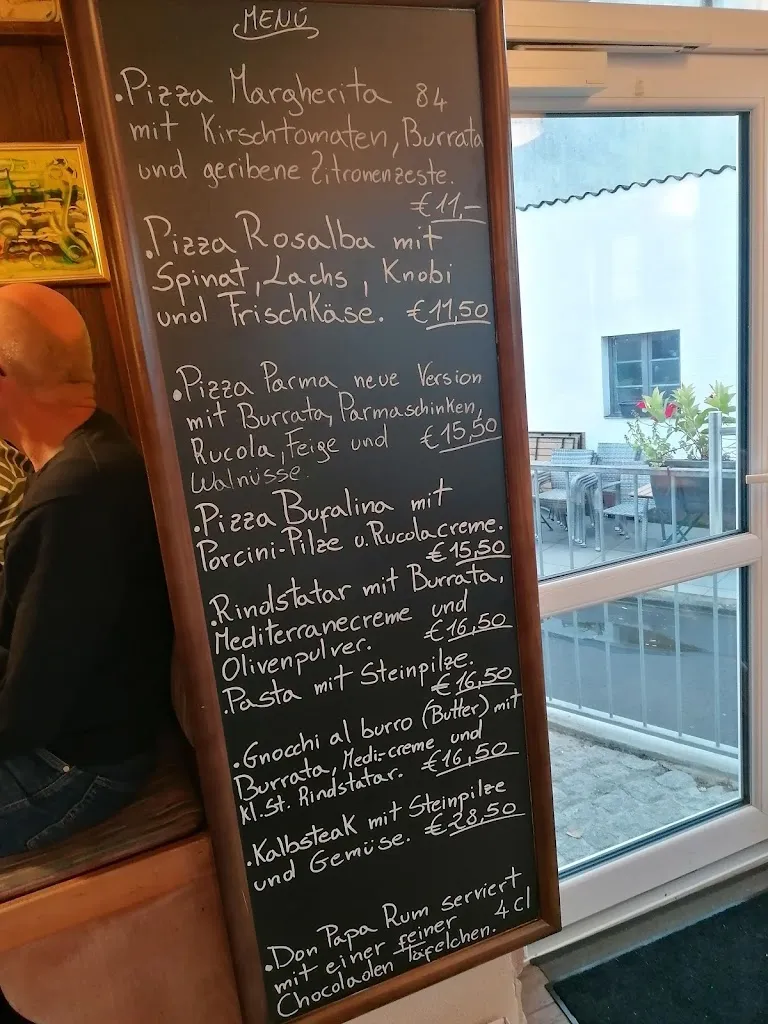 MENÚ
.Pizza Margherita 84
mit Kirschtomaten, Burrata
und geribene Zitronenzeste.
€ 11,-
.Pizza Rosalba mit
Spinat, Lachs, Knobi
und Frischkäse. € 11,50
.Pizza Parma neue Version
mit Burrata, Parmaschinken,
Rucola, Feige und € 15,50
Walnüsse.
.Pizza Bufalina mit
Porcini-Pilze u. Rucolacreme.
€ 15,50
.Rindstatar mit Burrata,
Mediterranecreme und
Olivenpulver. € 16,50
.Pasta mit Steinpilze.
€ 16,50
.Gnocchi al burro (Butter) mit
Burrata, Medi-creme und
kl. St. Rindstatar. € 16,50
.Kalbsteak mit Steinpilze
und Gemüse. € 28,50
.Don Papa Rum serviert
mit einer feiner 4 cl
Chocoladen Täfelchen.